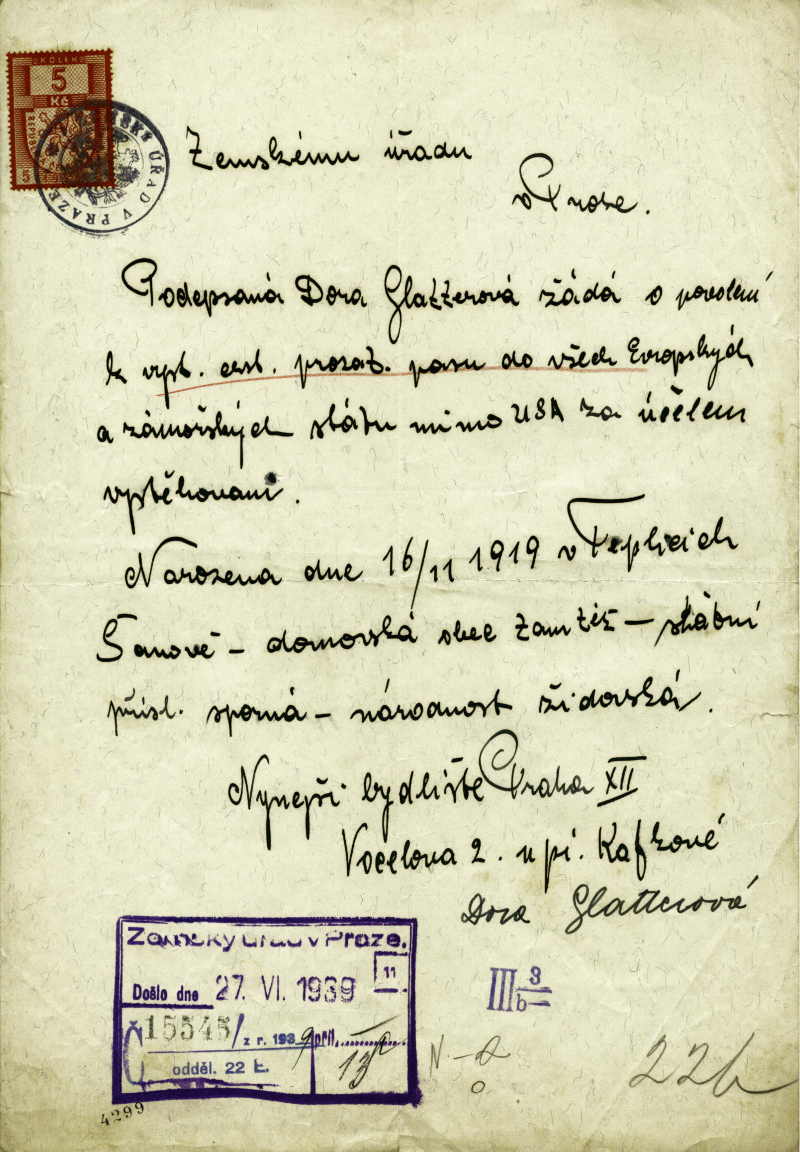 KOLEK
5
Kč
ZEMSKÝ ÚŘAD V PRAZE
Zemskému úřadu
v Praze.
Podepsaná Dora Glatterová žádá o povolení
k vyst. cest. prozat. pasu do všech Evropských
a zámořských státu mimo USA za účelem
vystěhovani.
Narozena dne 16/11 1919 v Teplicich
Šanově – domovská obec – státní
přísl. sporná – národnost židovská.
Nynejší bydliště Praha XII
Vocelova 2. u pí. Kafkové
Dora Glatterová
Zemský úřad v Praze.
11
Došlo dne 27. VI. 1939
Č 15545/ z r. 1939 příl.
odděl. 22
13
III 3
b
N
22b
4299